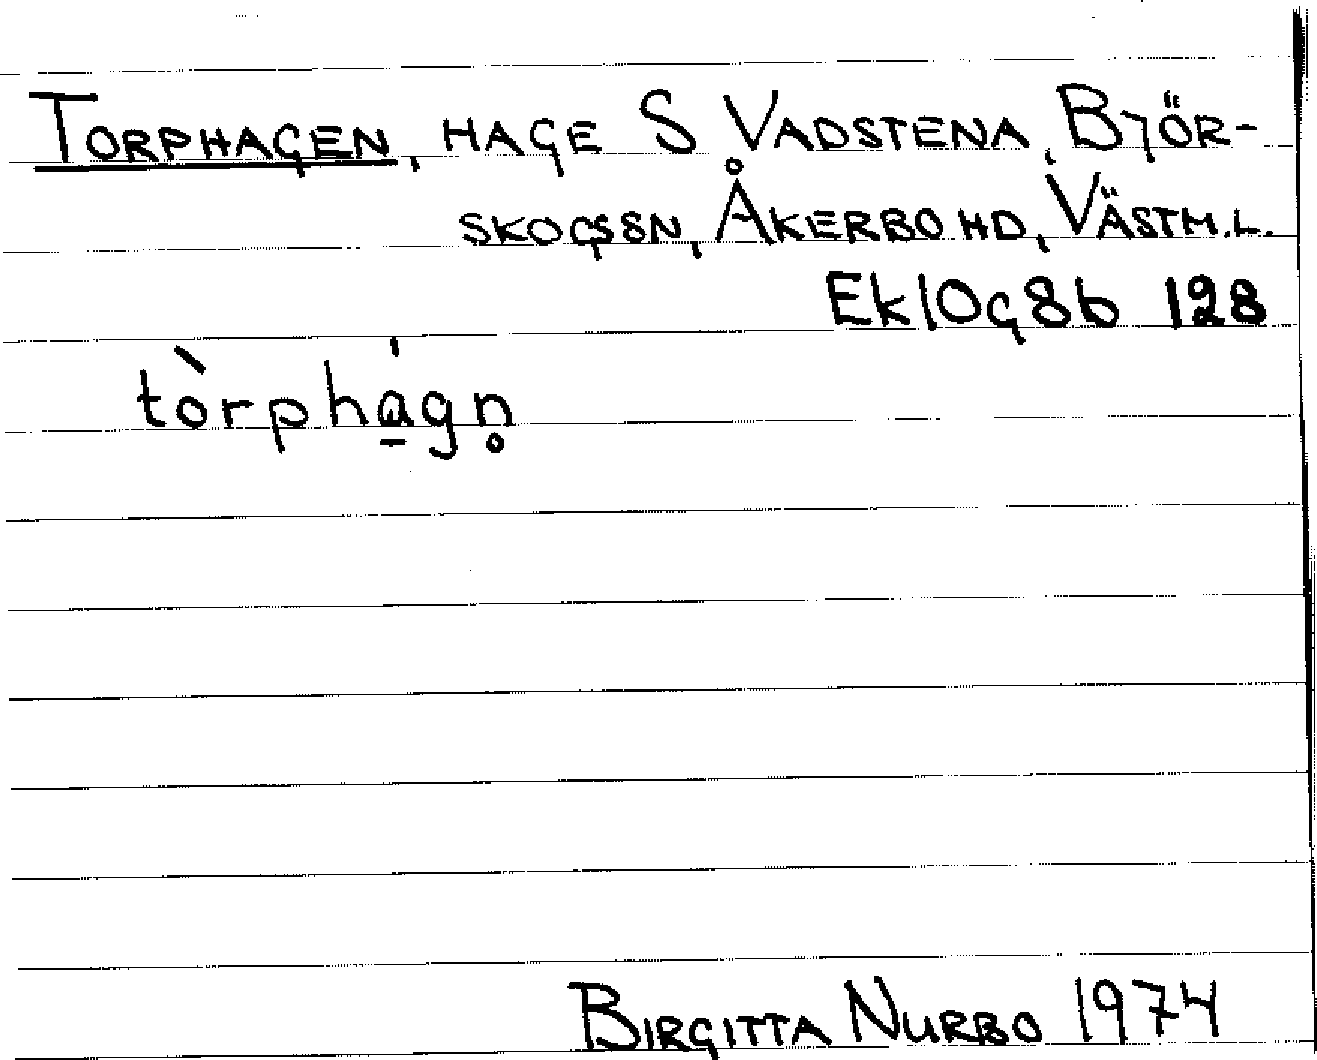 TORPHAGEN, HAGE S VADSTENA, BJÖR-
SKOGSSN, ÅKERBO HD, VÄSTM.L.
Ek10g8b 128
tòrphág̣n̥
BIRGITTA NURBO 1974